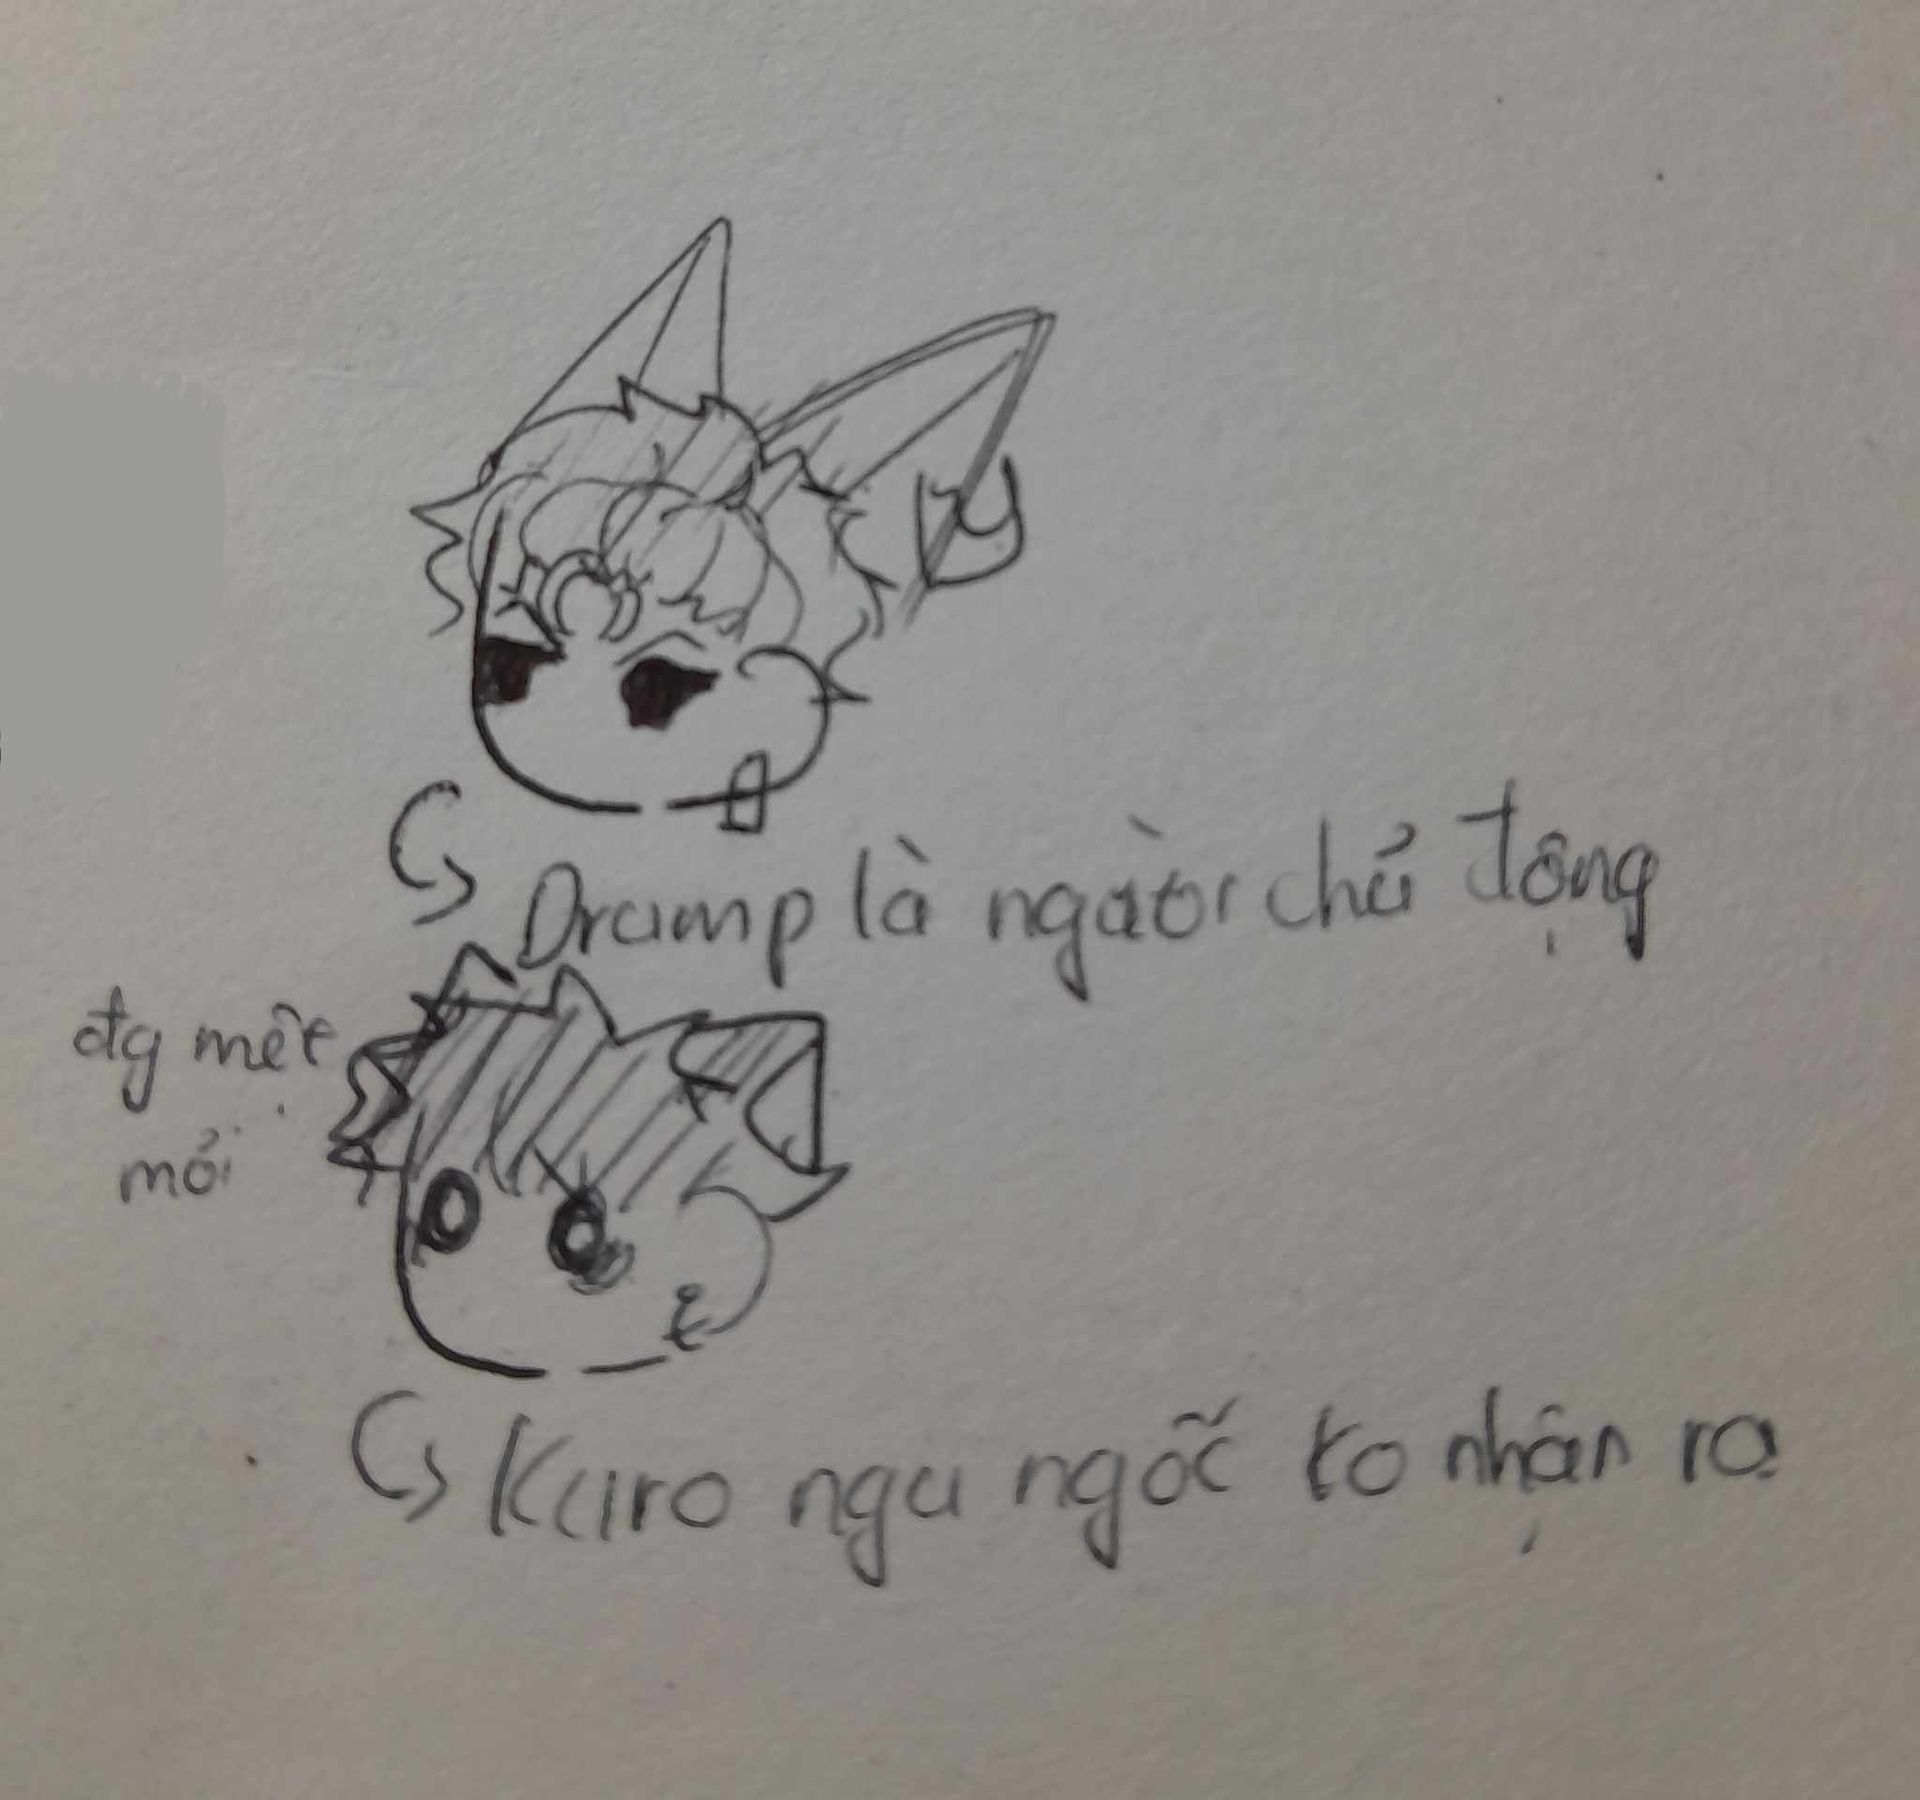 Drump là người chủ động
đg mệt
mỏi
Kuro ngu ngốc ko nhận ra